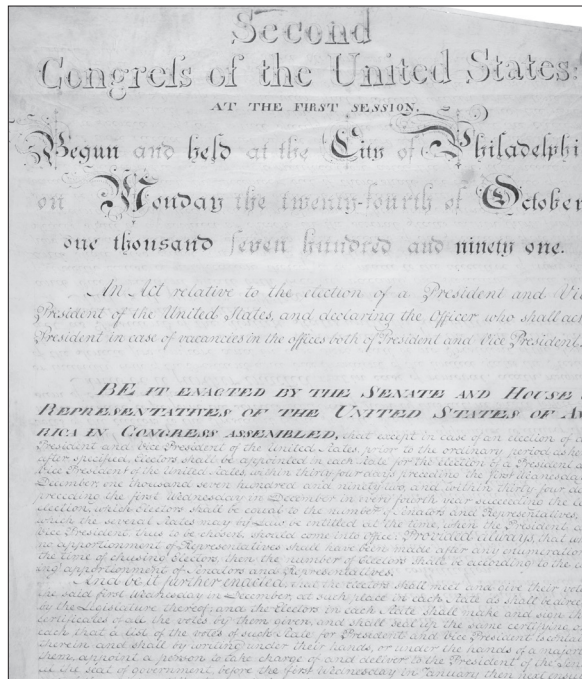 Second
Congreſs of the United States:
AT THE FIRST SESSION,
Begun and held at the City of Philadelphi
on Monday the twenty-fourth of October
one thousand seven hundred and ninety one.
An Act relative to the election of a President and Vi
President of the United States, and declaring the Officer who shall act
President in case of vacancies in the offices both of President and Vice President.
BE IT ENACTED BY THE SENATE AND HOUSE
REPRESENTATIVES OF THE UNITED STATES OF A
RICA IN CONGRESS ASSEMBLED, that except in case of an election of a
President and Vice President of the United States, prior to the ordinary period as
after specified, Electors shall be appointed in each State for the election of a President a
Vice President of the United States, within thirty four days preceding the first Wednesday
December, one thousand seven hundred and ninety two, and within thirty four da
preceding the first Wednesday in December in every fourth year succeeding the
election, which Electors shall be equal to the number of Senators and Representatives
which the several States may by Law be entitled at the time, when the President
Vice President thus to be chosen, should come into office: Provided always, that w
no apportionment of Representatives shall have been made after any enumeratio
the time of chusing Electors, then the number of Electors shall be according to the
ing apportionment of Senators and Representatives.
And be it further enacted, that the Electors shall meet and give their vot
the said first Wednesday in December, at such place in each State as shall be dire
by the Legislature thereof; and the Electors in each State shall make and sign th
certificates of all the votes by them given, and shall seal up the same certifying o
each that a list of the votes of such State for President and Vice President is
therein and shall by writing under their hands, or under the hands of a majori
them, appoint a person to take charge of and deliver to the President of the Sen
at the seat of government, before the first Wednesday in January then next ensu